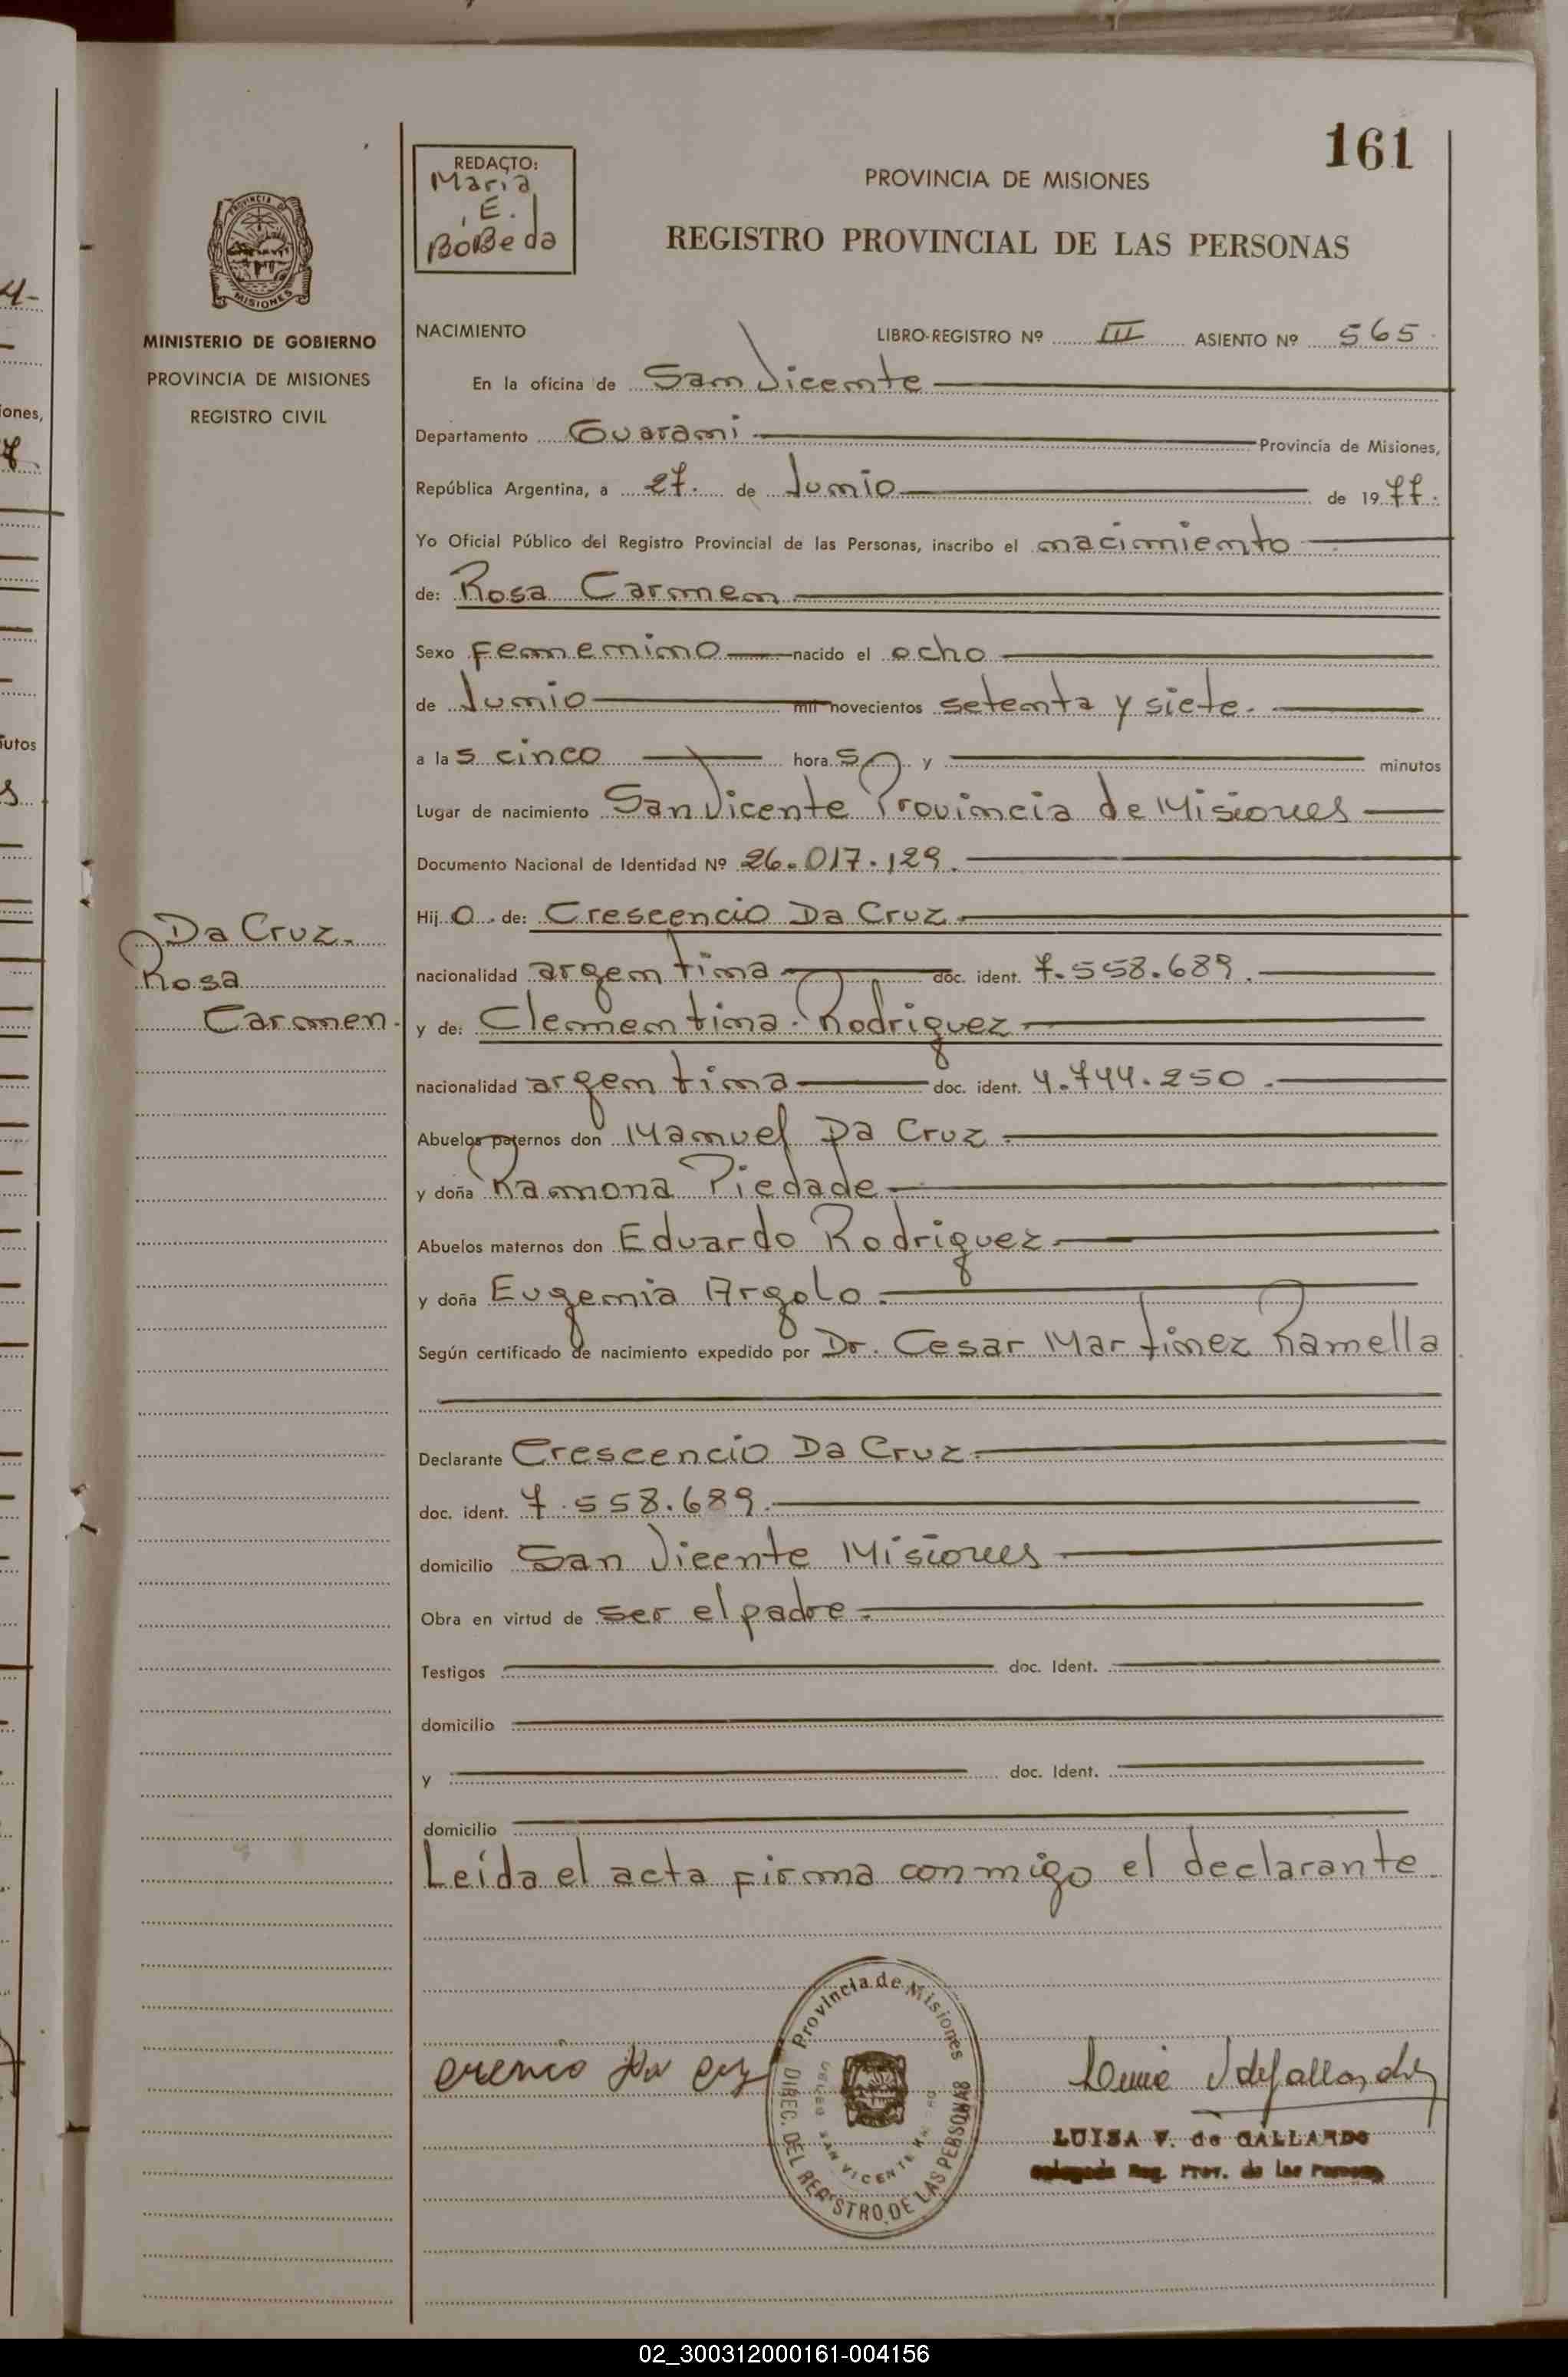 161
REDACTO:
Maria
E.
BoBeda
PROVINCIA DE MISIONES
REGISTRO PROVINCIAL DE LAS PERSONAS
PROVINCIA DE
MISIONES
MINISTERIO DE GOBIERNO
PROVINCIA DE MISIONES
REGISTRO CIVIL
NACIMIENTO LIBRO-REGISTRO Nº III ASIENTO Nº 565
En la oficina de San Vicente
Departamento Guarani Provincia de Misiones,
República Argentina, a 27. de Junio de 1977.
Yo Oficial Público del Registro Provincial de las Personas, inscribo el nacimiento
de: Rosa Carmen
Sexo femenino nacido el ocho
de Junio mil novecientos setenta y siete.
a las cinco horas y minutos
Lugar de nacimiento San Vicente Provincia de Misiones
Documento Nacional de Identidad Nº 26.017.129.
Da Cruz.
Rosa
Carmen.
Hijo. de: Crescencio Da Cruz.
nacionalidad argentina doc. ident. 7.558.689.
y de: Clementina Rodriguez
nacionalidad argentina doc. ident. 4.744.250.
Abuelos paternos don Manuel Da Cruz.
y doña Ramona Piedade.
Abuelos maternos don Eduardo Rodriguez.
y doña Eugenia Argolo.
Según certificado de nacimiento expedido por Dr. Cesar Martinez Ramella
Declarante Crescencio Da Cruz.
doc. ident. 7.558.689.
domicilio San Vicente Misiones
Obra en virtud de ser el padre.
Testigos doc. Ident.
domicilio
y doc. Ident.
domicilio
Leída el acta firma conmigo el declarante
Provincia de Misiones
DIREC. DEL REGISTRO DE LAS PERSONAS
SAN VICENTE
LUISA V. de GALLARDO
Reg. Prov. de las
iones,
utos
02_300312000161-004156